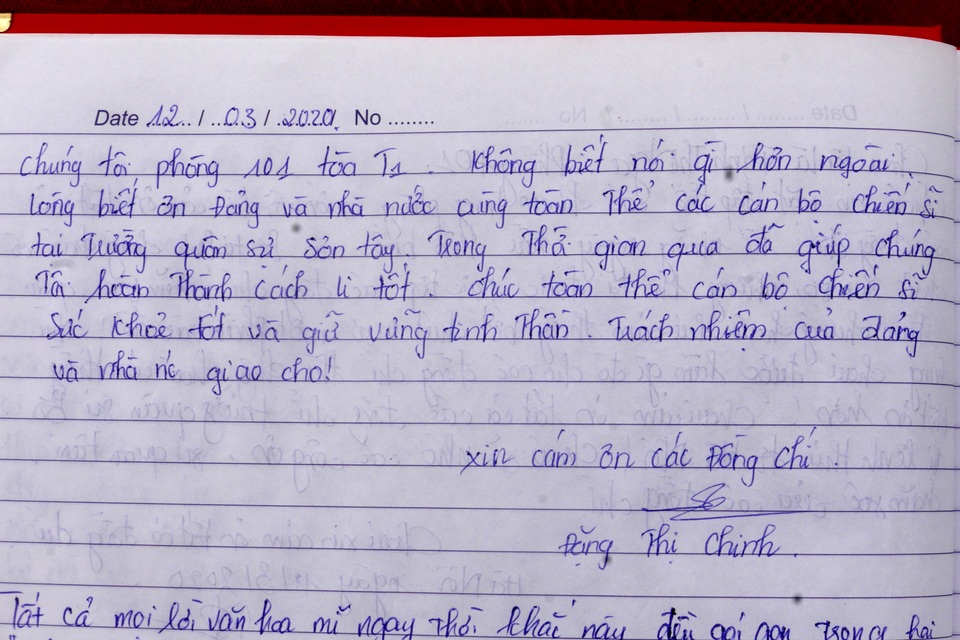 Date 12../..03./.2020. No ........
Chúng tôi, phòng 101 tòa T1. Không biết nói gì hơn ngoài
lòng biết ơn Đảng và nhà nước cùng toàn Thể các cán bộ chiến sĩ
tại Trường quân sự Sơn tây Trong Thời gian qua đã giúp chúng
Tôi hoàn Thành cách li tốt. Chúc toàn thể cán bộ chiến sĩ
Sức khoẻ tốt và giữ vững tinh Thần. Trách nhiệm của đảng
và nhà nc giao cho!
xin cám ơn các Đồng chí.
Đặng Thị Chinh.
Tất cả mọi lời văn hoa mĩ ngay thời khắc này đều gói gọn trong hai